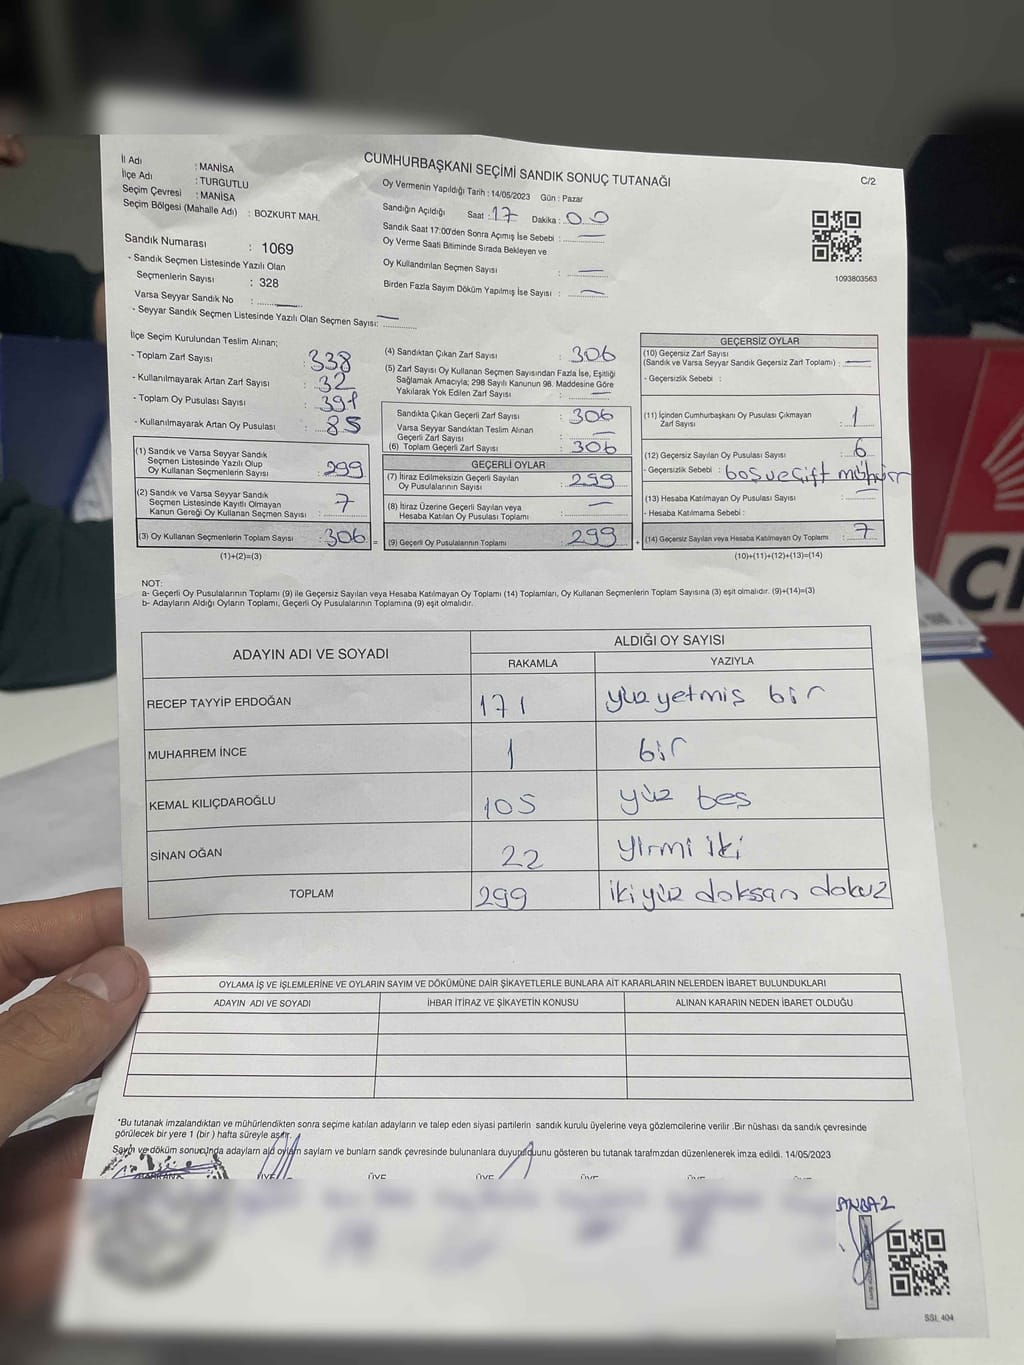 CUMHURBAŞKANI SEÇİMİ SANDIK SONUÇ TUTANAĞI
C/2
İl Adı : MANİSA
İlçe Adı : TURGUTLU
Seçim Çevresi : MANİSA
Seçim Bölgesi (Mahalle Adı) : BOZKURT MAH.
Sandık Numarası : 1069
- Sandık Seçmen Listesinde Yazılı Olan
Seçmenlerin Sayısı : 328
Varsa Seyyar Sandık No :
- Seyyar Sandık Seçmen Listesinde Yazılı Olan Seçmen Sayısı:
Oy Vermenin Yapıldığı Tarih : 14/05/2023 Gün : Pazar
Sandığın Açıldığı Saat : 17 Dakika : 00
Sandık Saat 17:00'den Sonra Açmış İse Sebebi : —
Oy Verme Saati Bitiminde Sırada Bekleyen ve
Oy Kullandırılan Seçmen Sayısı : —
Birden Fazla Sayım Döküm Yapılmış İse Sayısı : —
1093803563
İlçe Seçim Kurulundan Teslim Alınan;
- Toplam Zarf Sayısı : 338
- Kullanılmayarak Artan Zarf Sayısı : 32
- Toplam Oy Pusulası Sayısı : 391
- Kullanılmayarak Artan Oy Pusulası : 85
(1) Sandık ve Varsa Seyyar Sandık
Seçmen Listesinde Yazılı Olup
Oy Kullanan Seçmenlerin Sayısı : 299
(2) Sandık ve Varsa Seyyar Sandık
Seçmen Listesinde Kayıtlı Olmayan
Kanun Gereği Oy Kullanan Seçmen Sayısı : 7
(3) Oy Kullanan Seçmenlerin Toplam Sayısı : 306 =
(1)+(2)=(3)
(4) Sandıktan Çıkan Zarf Sayısı : 306
(5) Zarf Sayısı Oy Kullanan Seçmen Sayısından Fazla İse, Eşitliği
Sağlamak Amacıyla; 298 Sayılı Kanunun 98. Maddesine Göre
Yakılarak Yok Edilen Zarf Sayısı : —
Sandıkta Çıkan Geçerli Zarf Sayısı : 306
Varsa Seyyar Sandıktan Teslim Alınan
Geçerli Zarf Sayısı : —
(6) Toplam Geçerli Zarf Sayısı : 306
GEÇERLİ OYLAR
(7) İtiraz Edilmeksizin Geçerli Sayılan
Oy Pusulalarının Sayısı : 299
(8) İtiraz Üzerine Geçerli Sayılan veya
Hesaba Katılan Oy Pusulası Toplamı : —
(9) Geçerli Oy Pusulalarının Toplamı : 299 +
GEÇERSİZ OYLAR
(10) Geçersiz Zarf Sayısı
(Sandık ve Varsa Seyyar Sandık Geçersiz Zarf Toplamı) : —
- Geçersizlik Sebebi :
(11) İçinden Cumhurbaşkanı Oy Pusulası Çıkmayan
Zarf Sayısı : 1
(12) Geçersiz Sayılan Oy Pusulası Sayısı : 6
- Geçersizlik Sebebi : boş ve çift mühür
(13) Hesaba Katılmayan Oy Pusulası Sayısı : —
- Hesaba Katılmama Sebebi :
(14) Geçersiz Sayılan veya Hesaba Katılmayan Oy Toplamı : 7
(10)+(11)+(12)+(13)=(14)
NOT:
a- Geçerli Oy Pusulalarının Toplamı (9) ile Geçersiz Sayılan veya Hesaba Katılmayan Oy Toplamı (14) Toplamları, Oy Kullanan Seçmenlerin Toplam Sayısına (3) eşit olmalıdır. (9)+(14)=(3)
b- Adayların Aldığı Oyların Toplamı, Geçerli Oy Pusulalarının Toplamına (9) eşit olmalıdır.
ADAYIN ADI VE SOYADI ALDIĞI OY SAYISI
RAKAMLA YAZIYLA
RECEP TAYYİP ERDOĞAN 171 yüz yetmiş bir
MUHARREM İNCE 1 bir
KEMAL KILIÇDAROĞLU 105 yüz beş
SİNAN OĞAN 22 yirmi iki
TOPLAM 299 iki yüz doksan dokuz
OYLAMA İŞ VE İŞLEMLERİNE VE OYLARIN SAYIM VE DÖKÜMÜNE DAİR ŞİKAYETLERLE BUNLARA AİT KARARLARIN NELERDEN İBARET BULUNDUKLARI
ADAYIN ADI VE SOYADI İHBAR İTİRAZ VE ŞİKAYETİN KONUSU ALINAN KARARIN NEDEN İBARET OLDUĞU
*Bu tutanak imzalandıktan ve mühürlendikten sonra seçime katılan adayların ve talep eden siyasi partilerin sandık kurulu üyelerine veya gözlemcilerine verilir .Bir nüshası da sandık çevresinde
görülecek bir yere 1 (bir ) hafta süreyle asılır.
Sayım ve döküm sonucunda adayların aldığı oyların sayılarını ve bunların sandık çevresinde bulunanlara duyurulduğunu gösteren bu tutanak tarafımızdan düzenlenerek imza edildi. 14/05/2023
ÜYE ÜYE ÜYE ÜYE ÜYE ÜYE
SSI_404